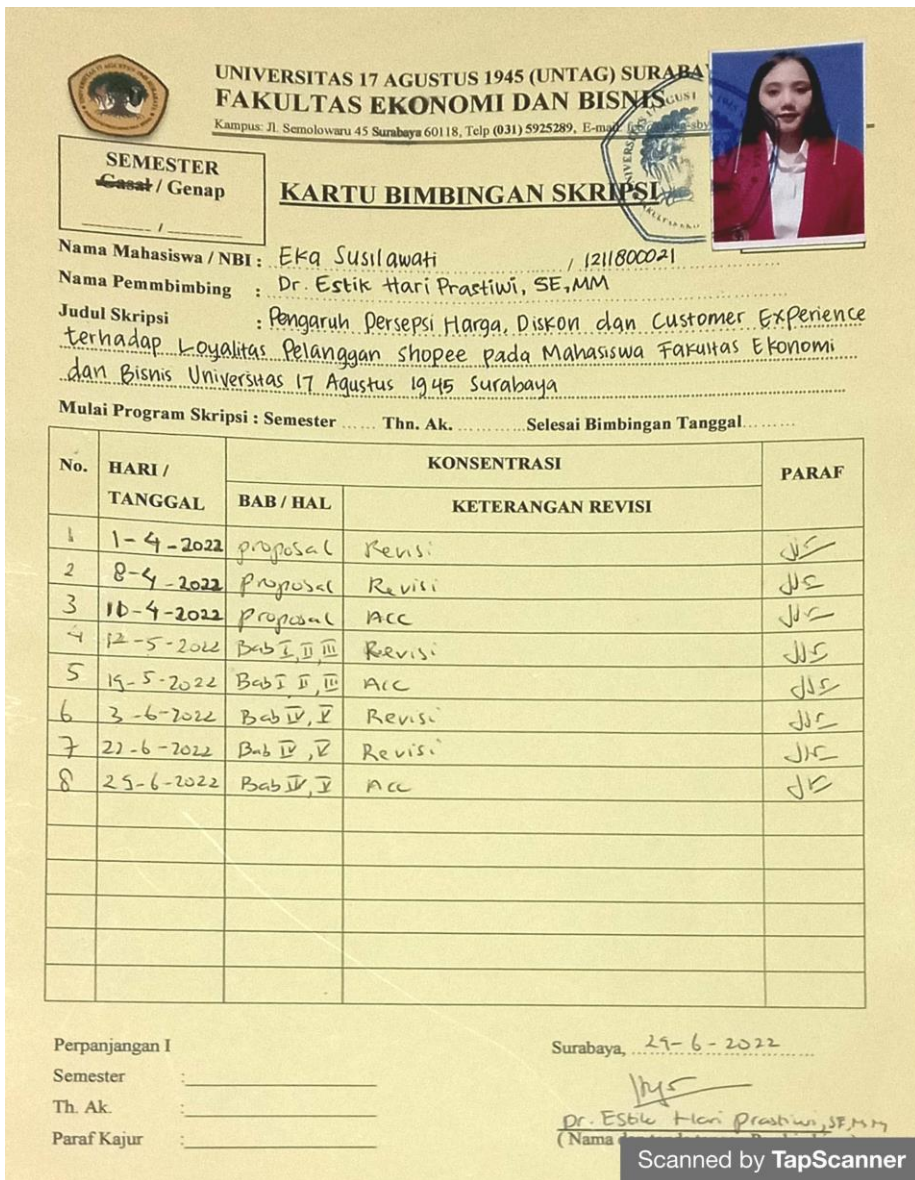 UNIVERSITAS 17 AGUSTUS 1945 (UNTAG) SURABA
FAKULTAS EKONOMI DAN BISNIS
Kampus: Jl. Semolowaru 45 Surabaya 60118, Telp (031) 5925289, E-mail:
SEMESTER
Gasal / Genap
/
KARTU BIMBINGAN SKRIPSI
Nama Mahasiswa / NBI : Eka Susilawati / 1211800021
Nama Pemmbimbing : Dr. Estik Hari Prastiwi, SE,MM
Judul Skripsi : Pengaruh Persepsi Harga, Diskon dan Customer Experience
terhadap Loyalitas Pelanggan Shopee pada Mahasiswa Fakultas Ekonomi
dan Bisnis Universitas 17 Agustus 1945 Surabaya
Mulai Program Skripsi : Semester ...... Thn. Ak. .......... Selesai Bimbingan Tanggal.........
No. HARI / TANGGAL KONSENTRASI PARAF
BAB / HAL KETERANGAN REVISI
1 1-4-2022 proposal Revisi
2 8-4-2022 proposal Revisi
3 -4-2022 proposal ACC
4 12-5-2022 Bab I, II, III Revisi
5 -5-2022 Bab I II, III Acc
6 3-6-2022 Bab IV, V Revisi
7 22-6-2022 Bab IV, V Revisi
8 -6-2022 Bab IV, V Acc
Perpanjangan I
Semester :
Th. Ak. :
Paraf Kajur :
Surabaya, -6-2022
Dr. Estik Hari Prastiwi, SE,MM
( Nama
Scanned by TapScanner